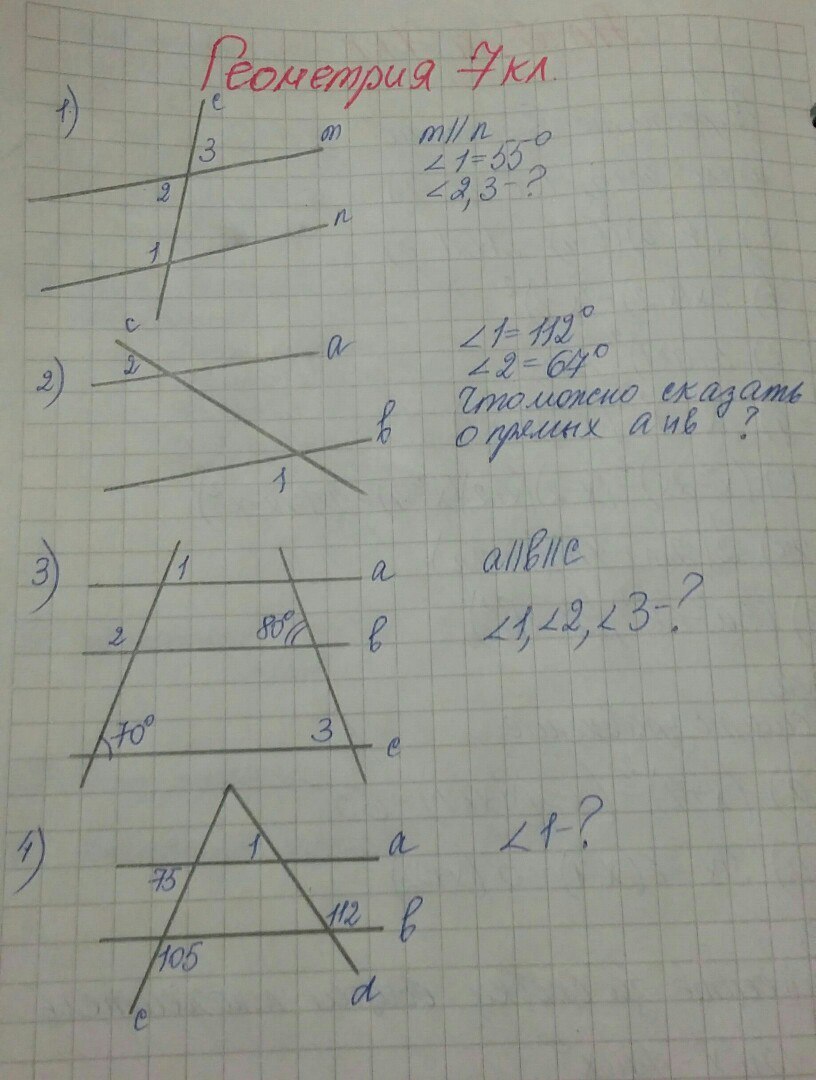 Геометрия 7кл.
1)
c
3
m
2
n
1
m//n
∠1=55°
∠2,3-?
2)
c
2
a
b
1
∠1=112°
∠2=67°
Что можно сказать
о прямых а и в ?
3)
1
a
2
80°
b
70°
3
c
a//b//c
∠1,∠2,∠3-?
4)
1
a
75
112
b
105
c
d
∠1-?